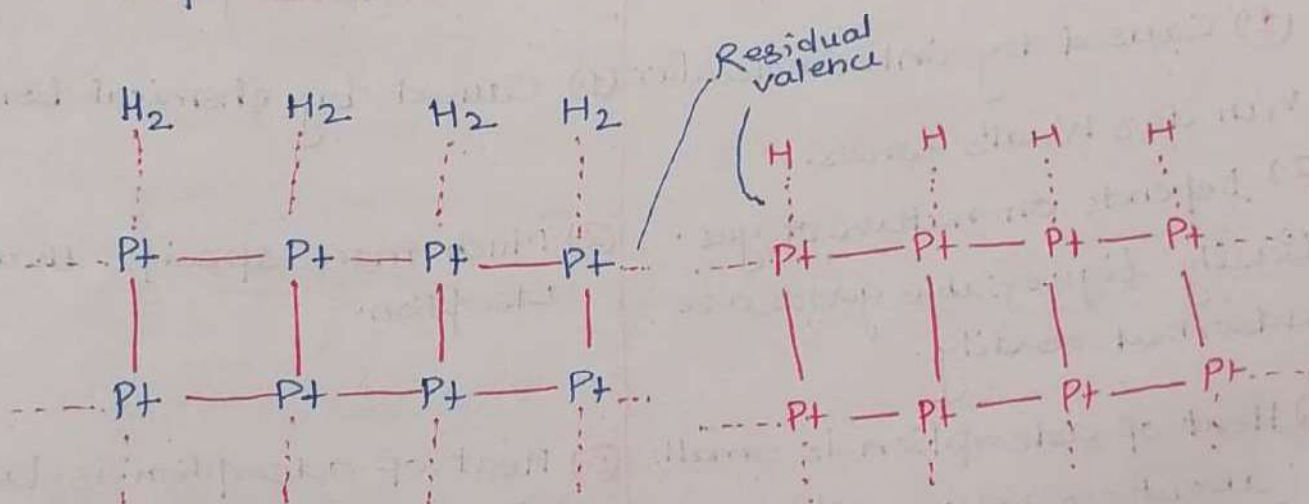 Residual
valence
H2 H2 H2 H2
H H H H
Pt Pt Pt Pt
Pt Pt Pt Pt
Pt Pt Pt Pt
Pt Pt Pt Pt